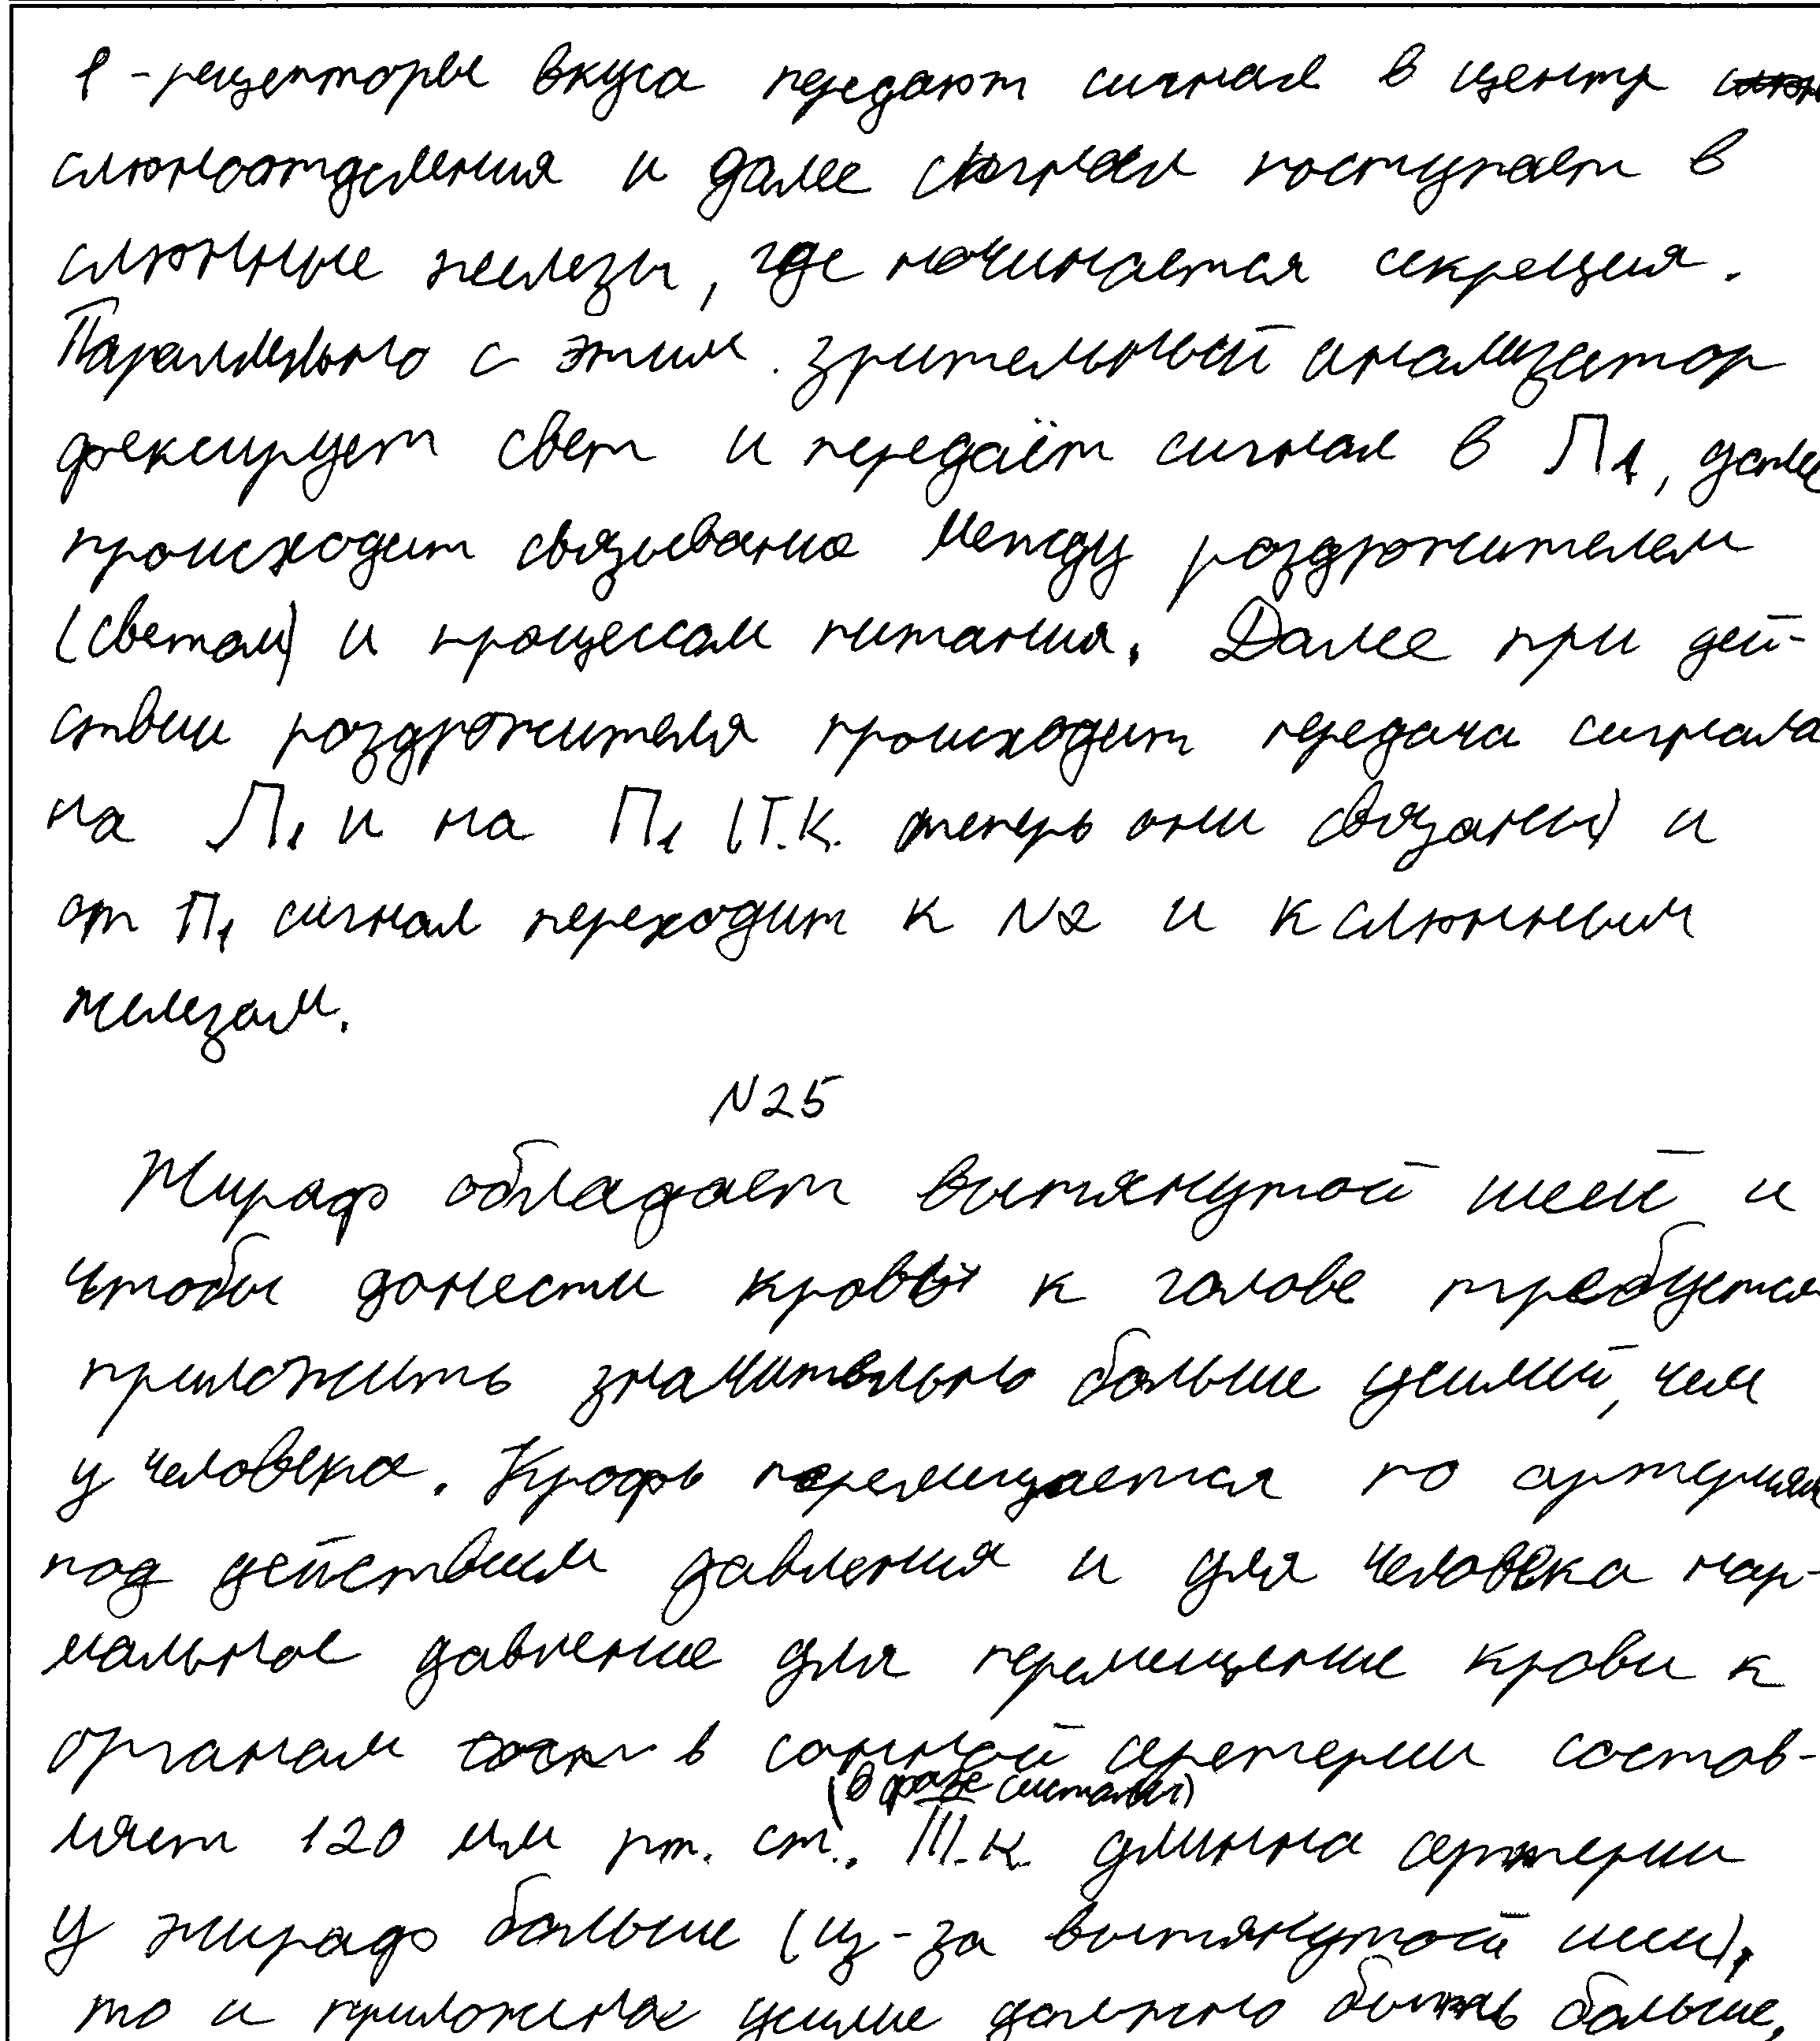 1 - рецепторы вкуса передают сигнал в центр
слюноотделения и далее сигнал поступает в
слюнные железы, где начинается секреция.
Параллельно с этим зрительный анализатор
фексирует свет и передаёт сигнал в Л1, далее
происходит связывание между раздрожителем
(светом) и процессом питания. Далее при дей-
ствии раздрожителя происходит передача сигнала
на Л1 и на П1 (т.к. теперь они связаны) и
от П1 сигнал переходит к N2 и к слюнным
железам.
N25
Жираф обладает вытянутой шеей и
чтобы донести кровь к голове требуется
приложить значительно больше усилий, чем
у человека. Кровь перемещается по артериям
под действием давления и для человека нор-
мальное давление для перемещение крови к
органам в сонной артерии состав-
(в фазе систолы)
ляет 120 мм рт. ст.. Т.к. длинна артерии
у жираф больше (из-за вытянутой шеи),
то и приложеное усилие должно быть больше,